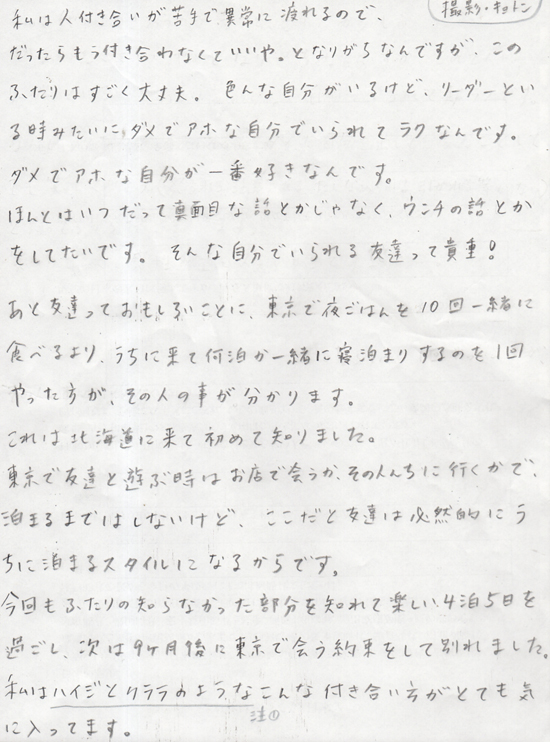 撮影・キョトン
私は人付き合いが苦手で異常に疲れるので、
だったらもう付き合わなくていいや。となりがちなんですが、この
ふたりはすごく大丈夫。 色んな自分がいるけど、リーダーとい
る時みたいにダメでアホな自分でいられてラクなんです。
ダメでアホな自分が一番好きなんです。
ほんとはいつだって真面目な話とかじゃなく、ウンチの話とか
をしてたいです。 そんな自分でいられる友達って貴重!
あと友達っておもしろいことに、東京で夜ごはんを10回一緒に
食べるより、うちに来て何泊か一緒に寝泊まりするのを1回
やった方が、その人の事が分かります。
これは北海道に来て初めて知りました。
東京で友達と遊ぶ時はお店で会うか、その人んちに行くかで、
泊まるまではしないけど、ここだと友達は必然的にう
ちに泊まるスタイルになるからです。
今回もふたりの知らなかった部分を知れて楽しい4泊5日を
過ごし、次は9ヶ月後に東京で会う約束をして別れました。
私はハイジとクララのようなこんな付き合い方がとても気
注①
に入ってます。